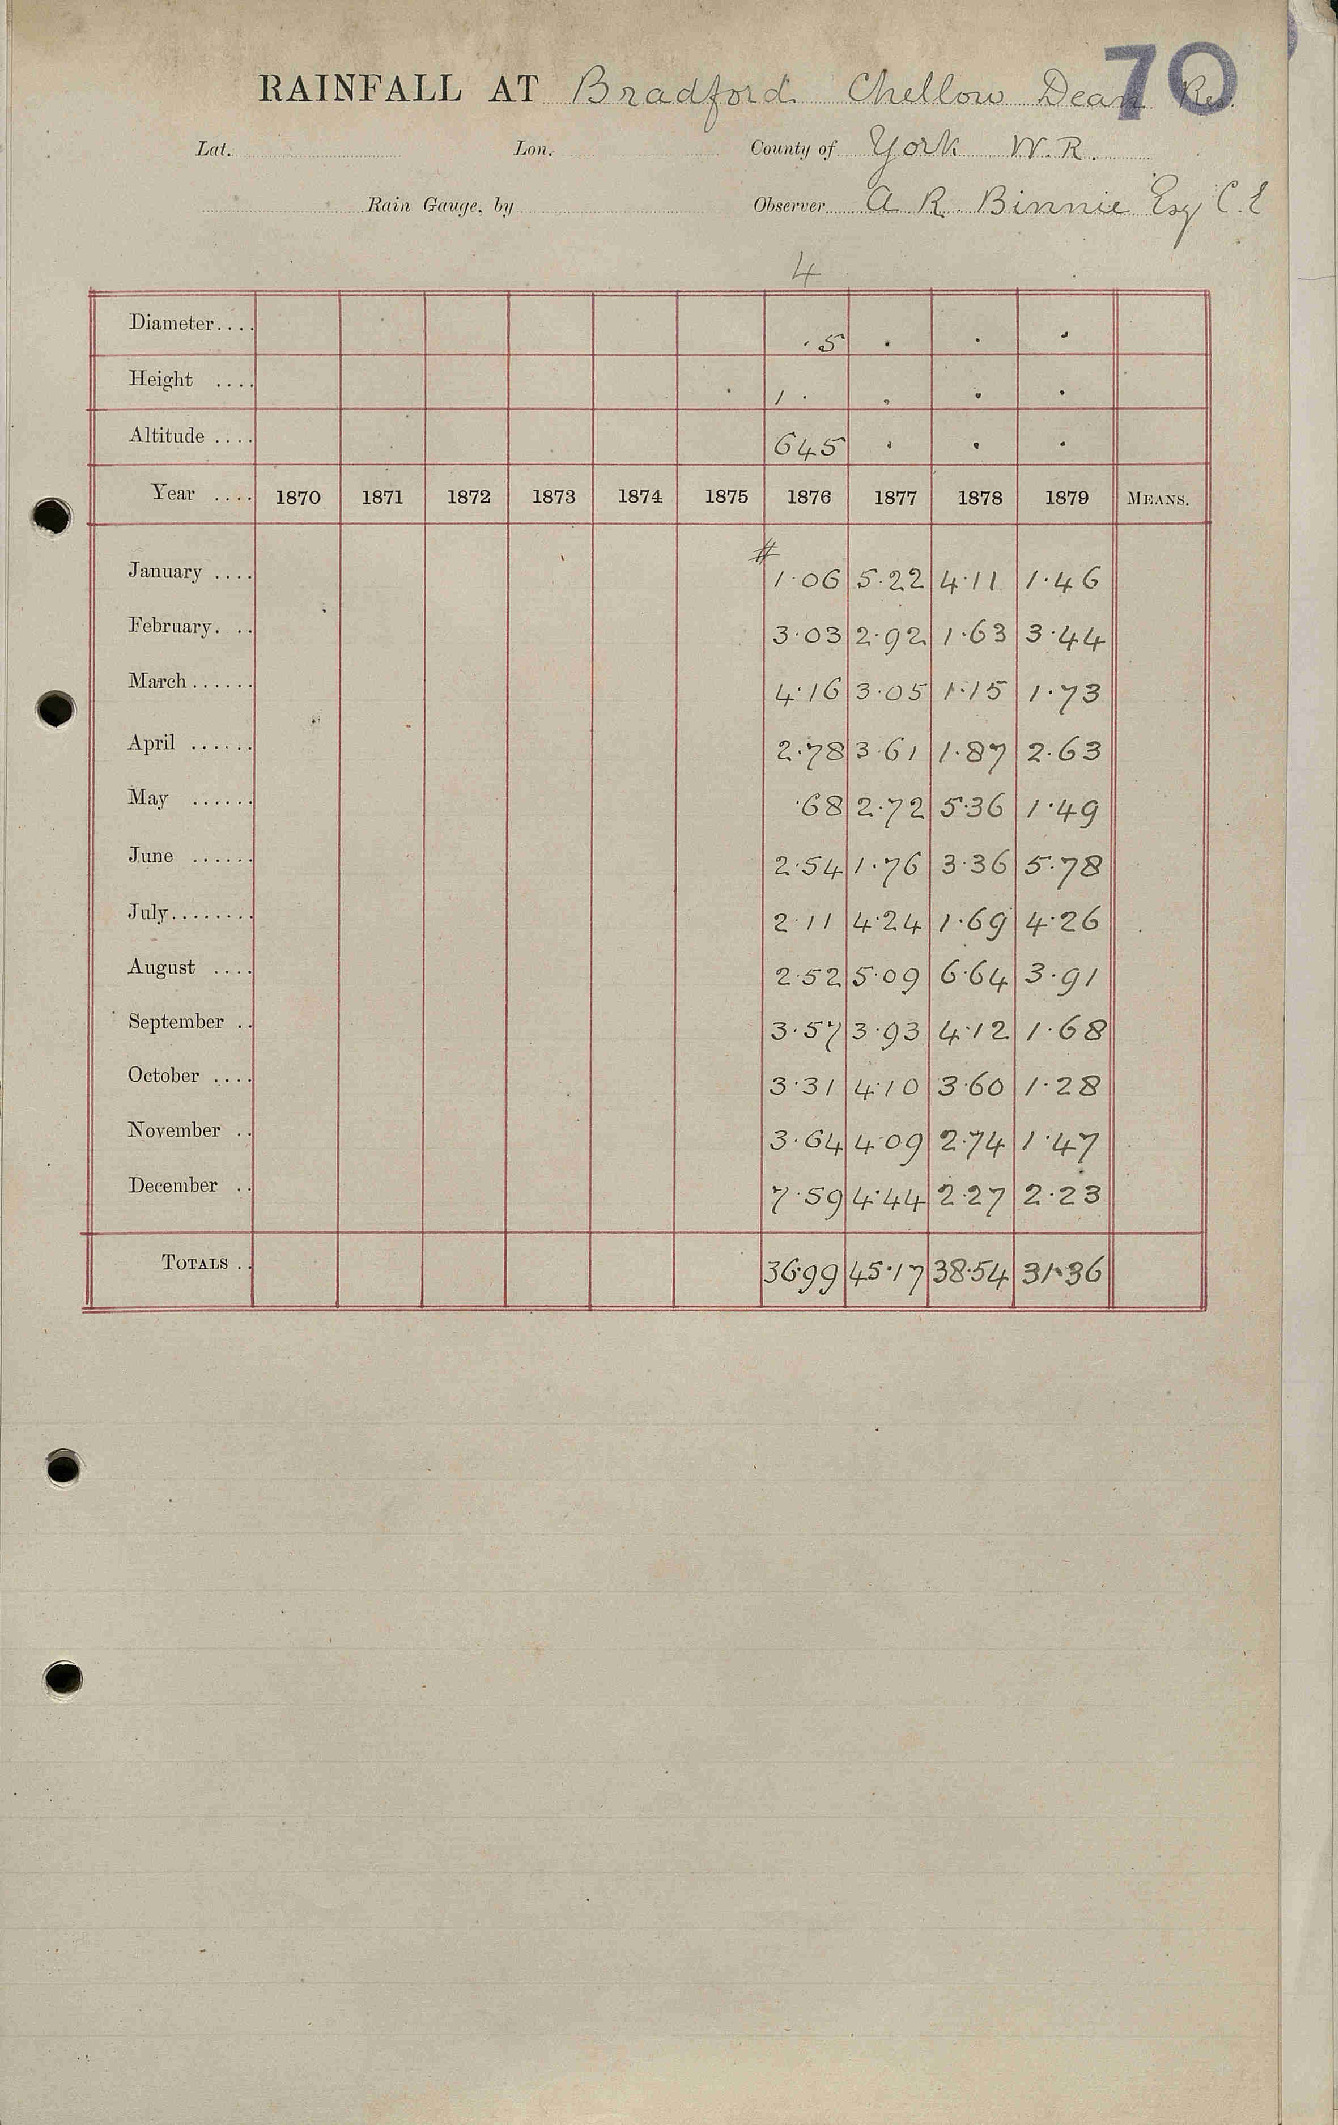 70
RAINFALL AT Bradford Chellow Dean Res.
Lat. Lon. County of York W.R.
Rain Gauge, by Observer A R Binnie Esq C.E
4
Diameter.... .5 . . .
Height .... 1. . . .
Altitude .... 645 . . .
Year .... 1870 1871 1872 1873 1874 1875 1876 1877 1878 1879 MEANS.
#
January .... 1.06 5.22 4.11 1.46
February. .. 3.03 2.92 1.63 3.44
March...... 4.16 3.05 1.15 1.73
April ...... 2.78 3.61 1.87 2.63
May ...... .68 2.72 5.36 1.49
June ...... 2.54 1.76 3.36 5.78
July........ 2.11 4.24 1.69 4.26
August .... 2.52 5.09 6.64 3.91
September .. 3.57 3.93 4.12 1.68
October .... 3.31 4.10 3.60 1.28
November .. 3.64 4.09 2.74 1.47
December .. 7.59 4.44 2.27 2.23
TOTALS .. 36.99 45.17 38.54 31.36